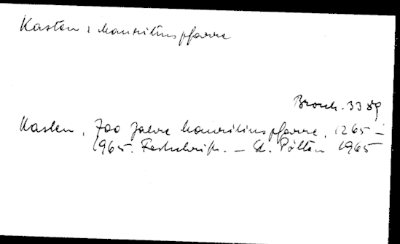 Kasten, Mauritiuspfarre
Brosch. 3389
Kasten, 700 Jahre Mauritiuspfarre, 1265 –
1965. Festschrift. – St. Pölten 1965